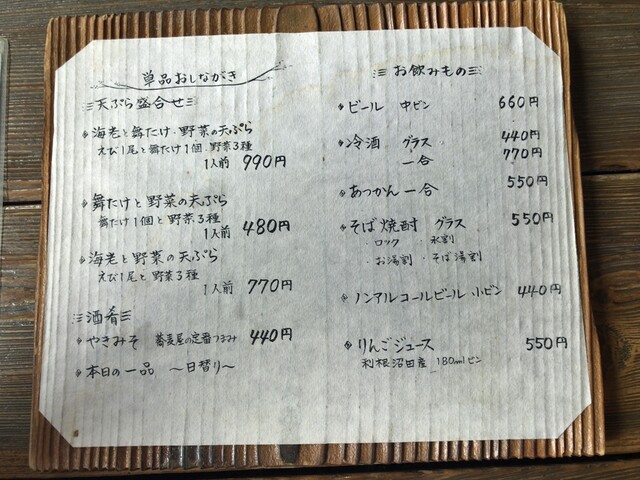 単品おしながき
天ぷら盛合せ
海老と舞たけ、野菜の天ぷら
えび1尾と舞たけ1個、野菜3種
1人前 990円
舞たけと野菜の天ぷら
舞たけ1個と野菜3種
1人前 480円
海老と野菜の天ぷら
えび1尾と野菜3種
1人前 770円
酒肴
やきみそ 蕎麦屋の定番つまみ 440円
本日の一品 〜日替り〜
お飲みもの
ビール 中ビン 660円
冷酒 グラス 440円
一合 770円
あつかん 一合 550円
そば焼酎 グラス 550円
・ロック ・水割
・お湯割 ・そば湯割
ノンアルコールビール 小ビン 440円
りんごジュース 550円
利根沼田産 180mlビン